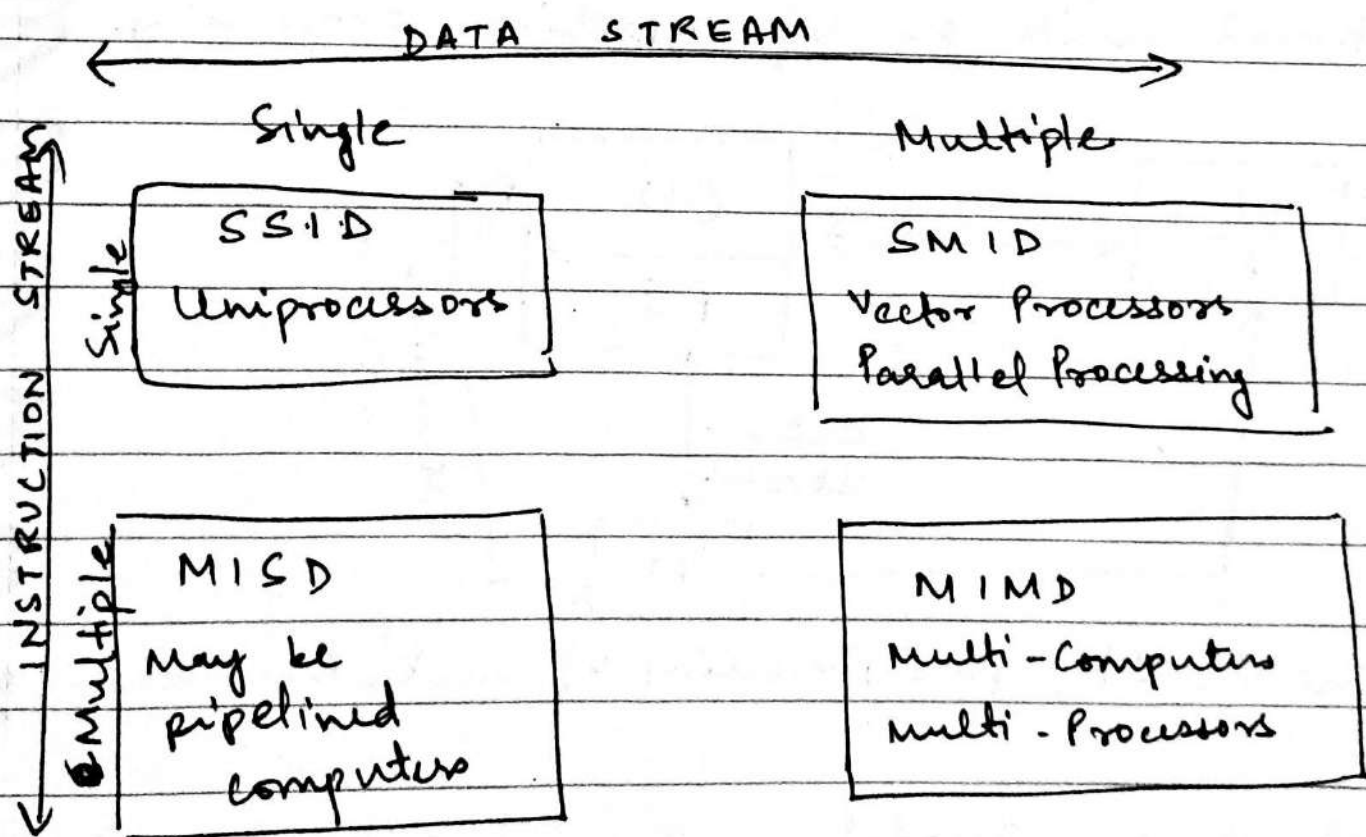 DATA STREAM
Single Multiple
INSTRUCTION STREAM
Single
SSID
Uniprocessors
SMID
Vector Processors
Parallel Processing
Multiple
MISD
May be
pipelined
computers
MIMD
Multi-Computers
Multi-Processors